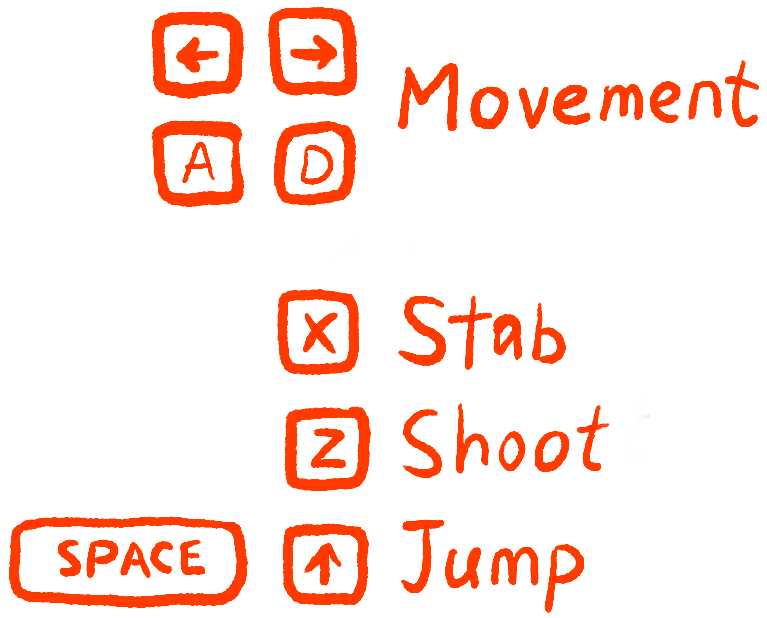 ← → Movement
A D
X Stab
Z Shoot
SPACE ↑ Jump